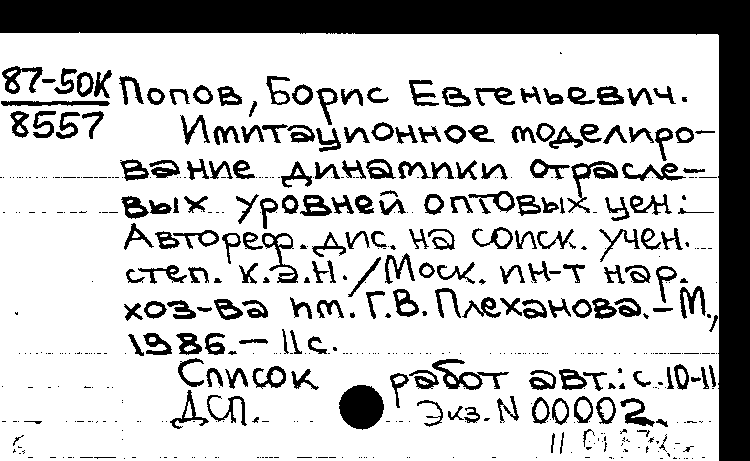 87-50К Попов, Борис Евгеньевич.
8557 Имитационное моделиро-
вание динамики отрасле-
вых уровней оптовых цен:
Автореф. дис. на соиск. учен.
степ. к.э.н. / Моск. ин-т нар.
хоз-ва им. Г.В. Плеханова. – М.,
1986. – 11 с.
Список работ авт.: с. 10-11
ДСП. Экз. N 00002.